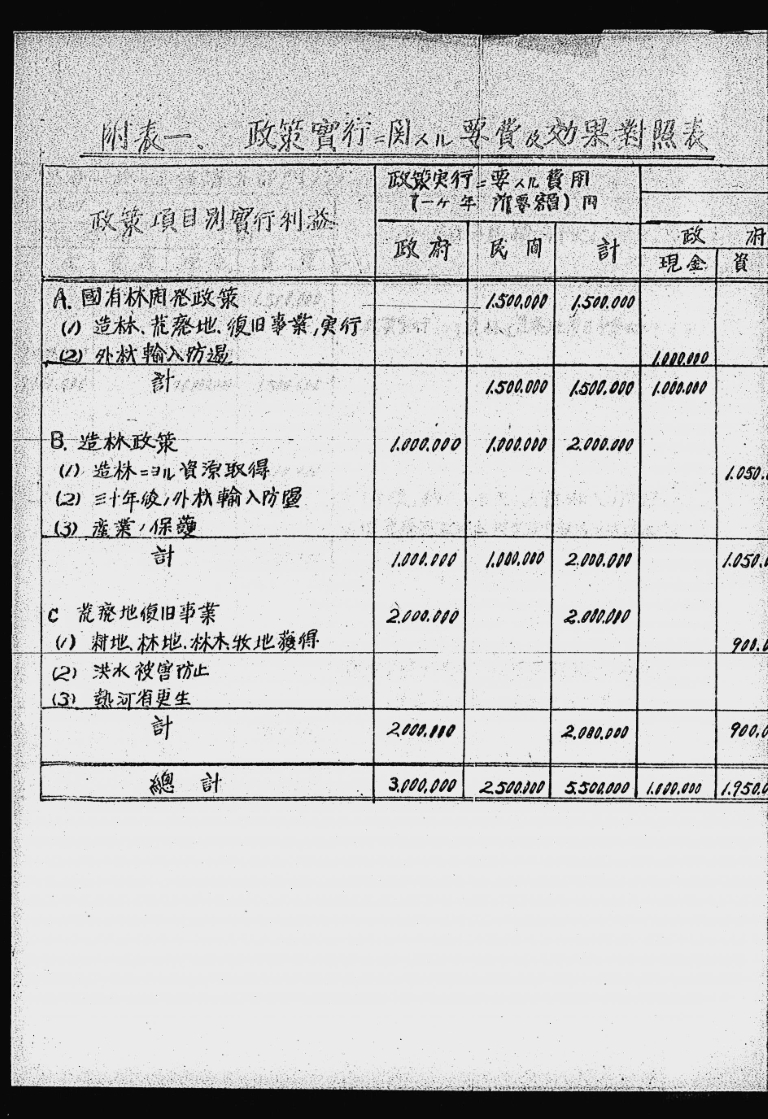 附表一、 政策實行ニ関スル要費及効果對照表
政策項目別實行利益
政策実行ニ要スル費用
(一ヶ年所要額)円
政府 民間 計 政府
現金 資
A. 國有林開発政策 1.500,000 1.500,000
(1) 造林、荒廃地、復旧事業ノ実行
(2) 外材輸入防遏 1.000.000
計 1.500,000 1.500,000 1.000.000
B. 造林政策 1.000.000 1.000.000 2.000.000
(1) 造林ニヨル資源取得 1.050.0
(2) 三十年後ノ外材輸入防遏
(3) 産業ノ保護
計 1.000.000 1.000.000 2.000.000 1.050.0
C 荒廃地復旧事業 2.000.000 2.000.000
(1) 耕地、林地、林木、牧地獲得 900.0
(2) 洪水被害防止
(3) 熱河省更生
計 2.000.000 2.000,000 900,0
總計 3.000,000 2.500.000 5.500,000 1.000.000 1.950.0